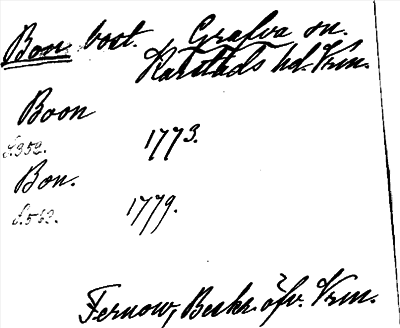 Bon bost. Grafva sn.
Karlstads hd. Vrm.
Boon
s. 952. 1773.
Bon.
s. 562. 1779.
Fernow, Beskr. öfv. Vrm.